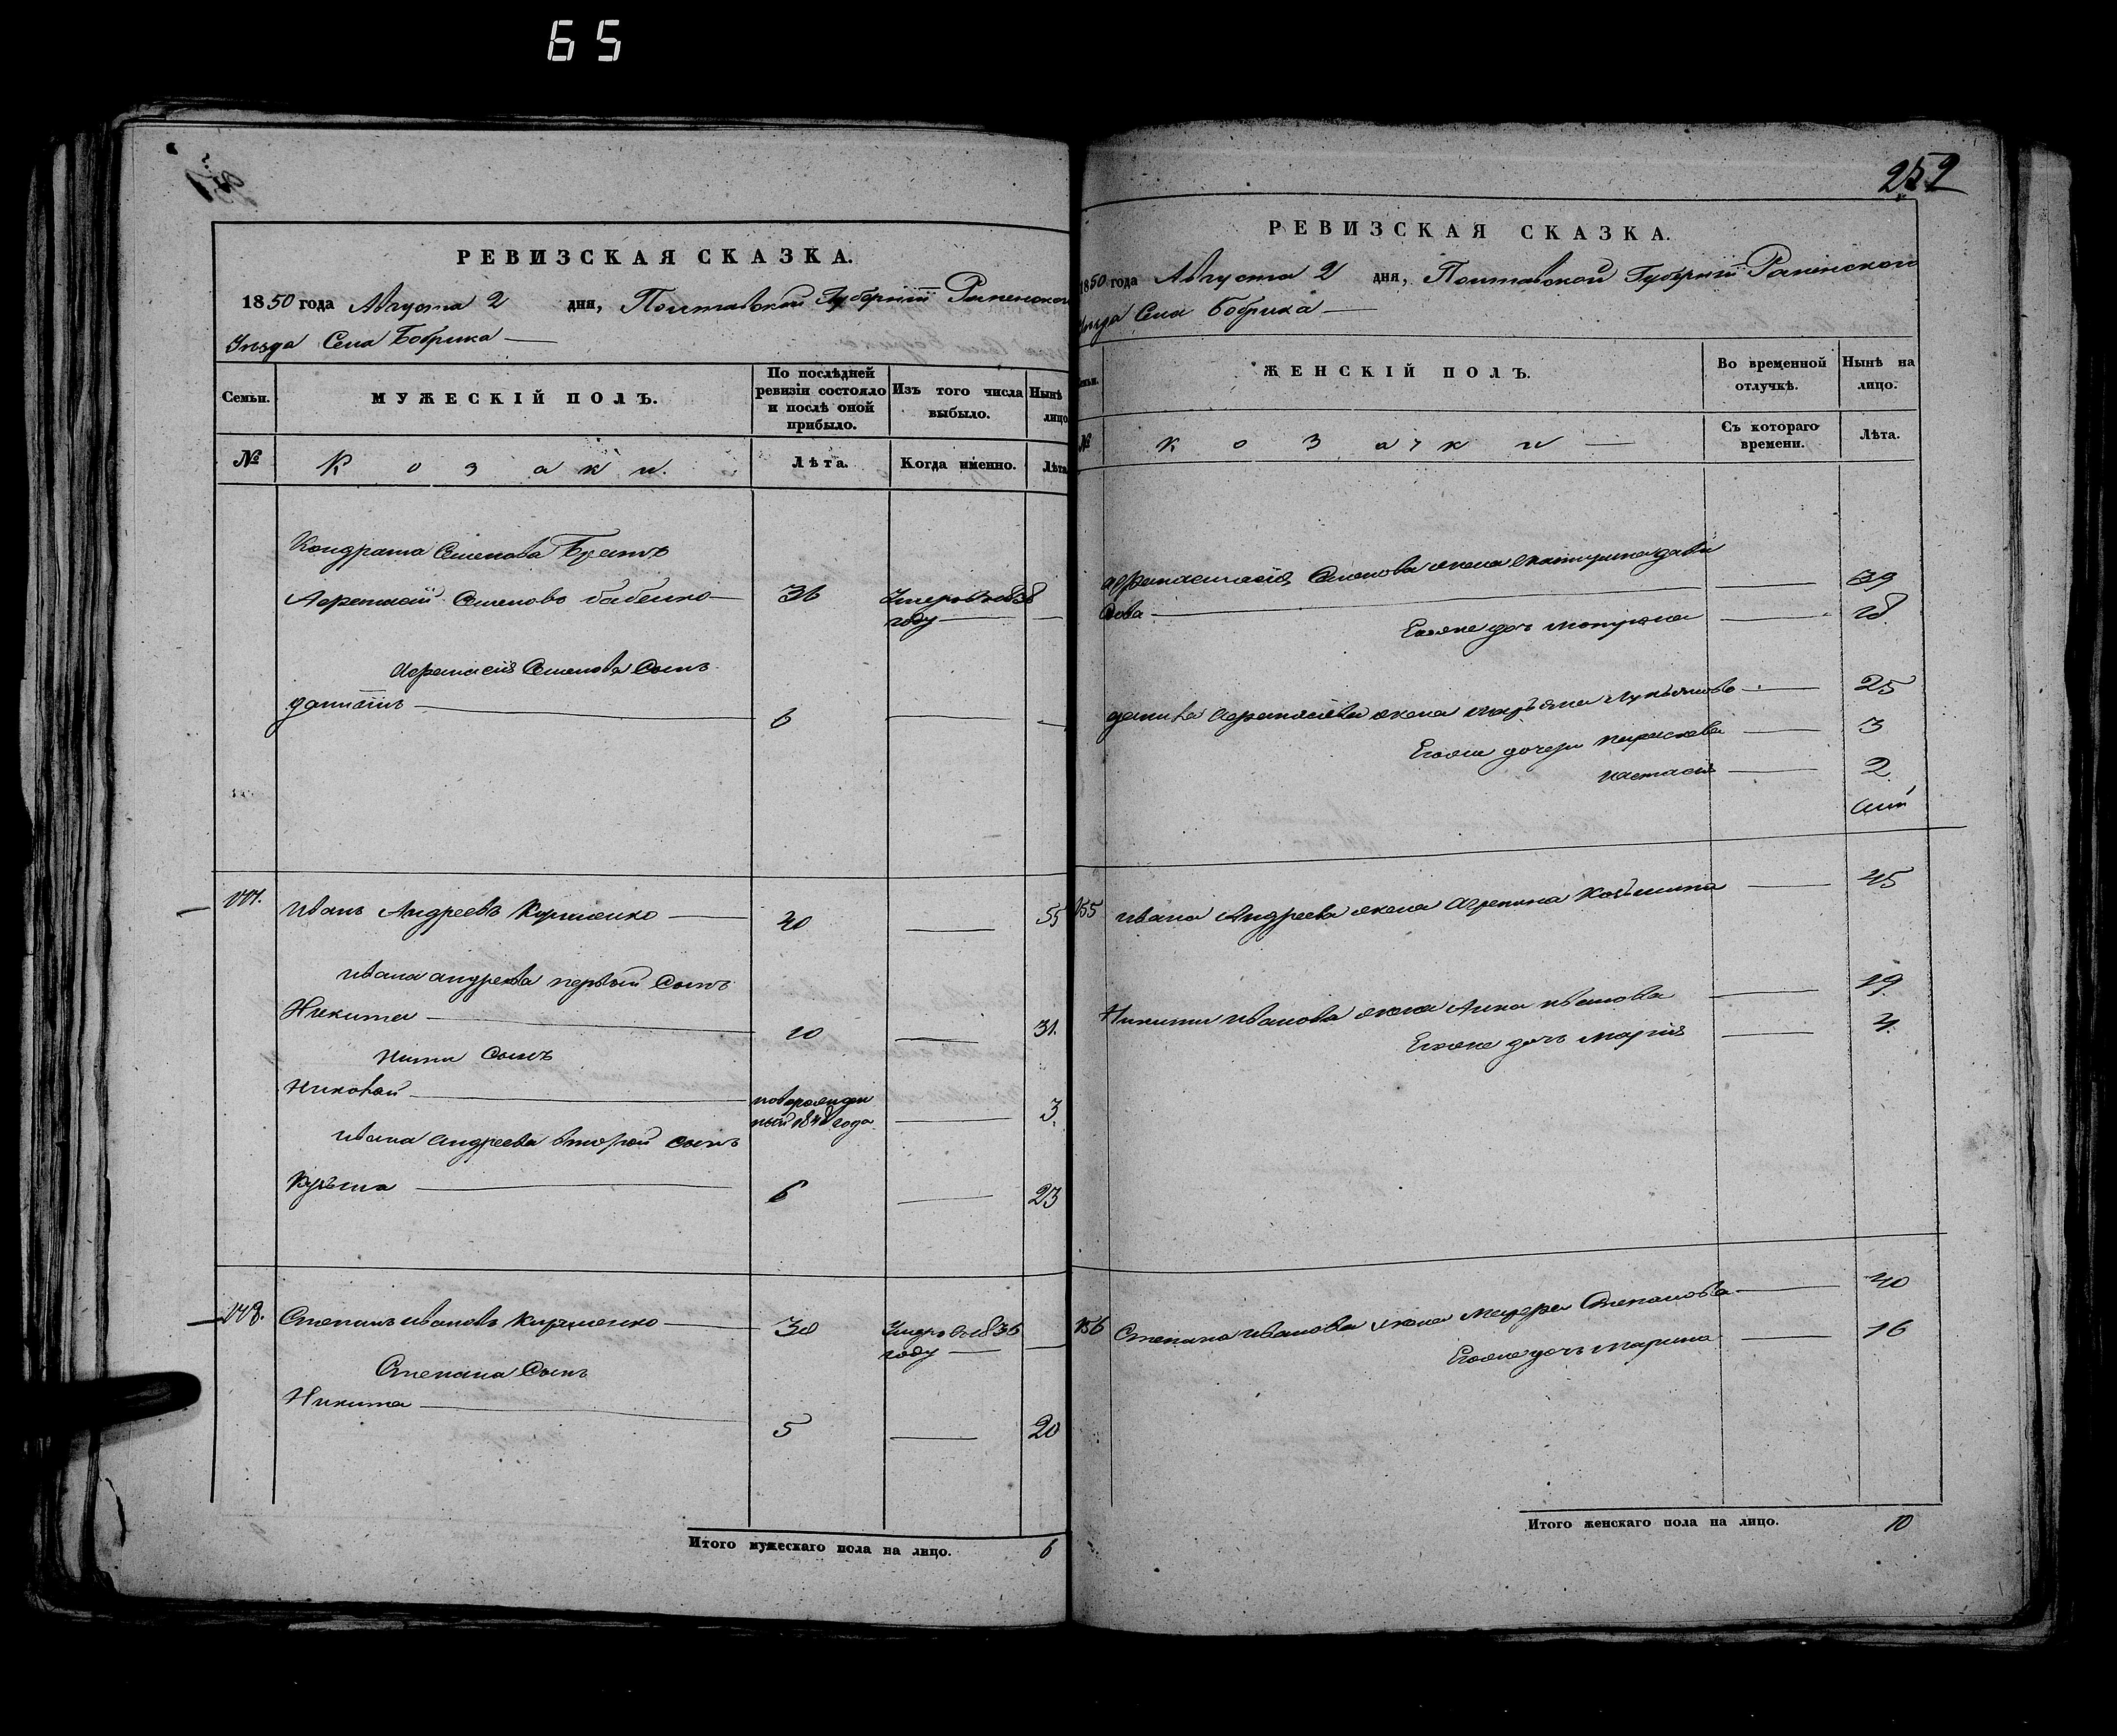 65
РЕВИЗСКАЯ СКАЗКА.
1850 года Августа 2 дня, Полтавской Губерніи Роменского
Уѣзда Села Бобрика
Семьи.
МУЖЕСКІЙ ПОЛЪ.
По послѣдней ревизіи состояло и послѣ оной прибыло.
Изъ того числа выбыло.
Нынѣ лицо
№
Козаки.
Лѣта.
Когда именно.
Лѣта
Кондрата Семенова Братъ
Афанасій Семеновъ бабенко 36 Умеръ въ 1838 году
Афанасія Семенова Сынъ
Даніилъ 6
Иванъ Андреевъ 40 55
Ивана андреева первый Сынъ
Никита 10 31.
Сынъ
Николай новорожден ный 1848 года 3
Ивана андреева второй сынъ
Кузьма 6 23
148. Степанъ ивановъ 30 Умеръ въ 1836 году
Степана Сынъ
Никита 5 20
Итого мужескаго пола на лицо. 6
252
РЕВИЗСКАЯ СКАЗКА.
1850 года Августа 2 дня, Полтавской Губерніи Роменского
Уѣзда Села Бобрика
ЖЕНСКІЙ ПОЛЪ.
Во временной отлучкѣ.
Нынѣ на лицо.
№
Козачки
Съ котораго времени.
Лѣта.
афанасія Семенова жена Катерина дави
дова 39
Егоже дочь 18
данила афанасіева жена марьяна 25
Егоже дочери параскева 3
настасія 2
155 ивана Андреева жена агрепина 45
Никиты иванова жена Анна иванова 29
Егоже дочь марія 4.
156 Степана иванова жена Степанова 40
Егоже дочь марина 16
Итого женскаго пола на лицо. 10